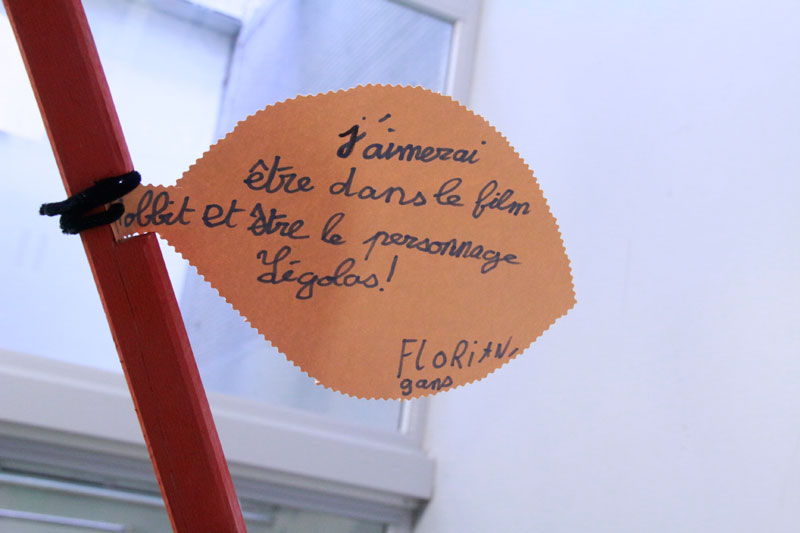 j'aimerai
être dans le film
obbit et être le personnage
Légolas!
FLORIAN
9ans